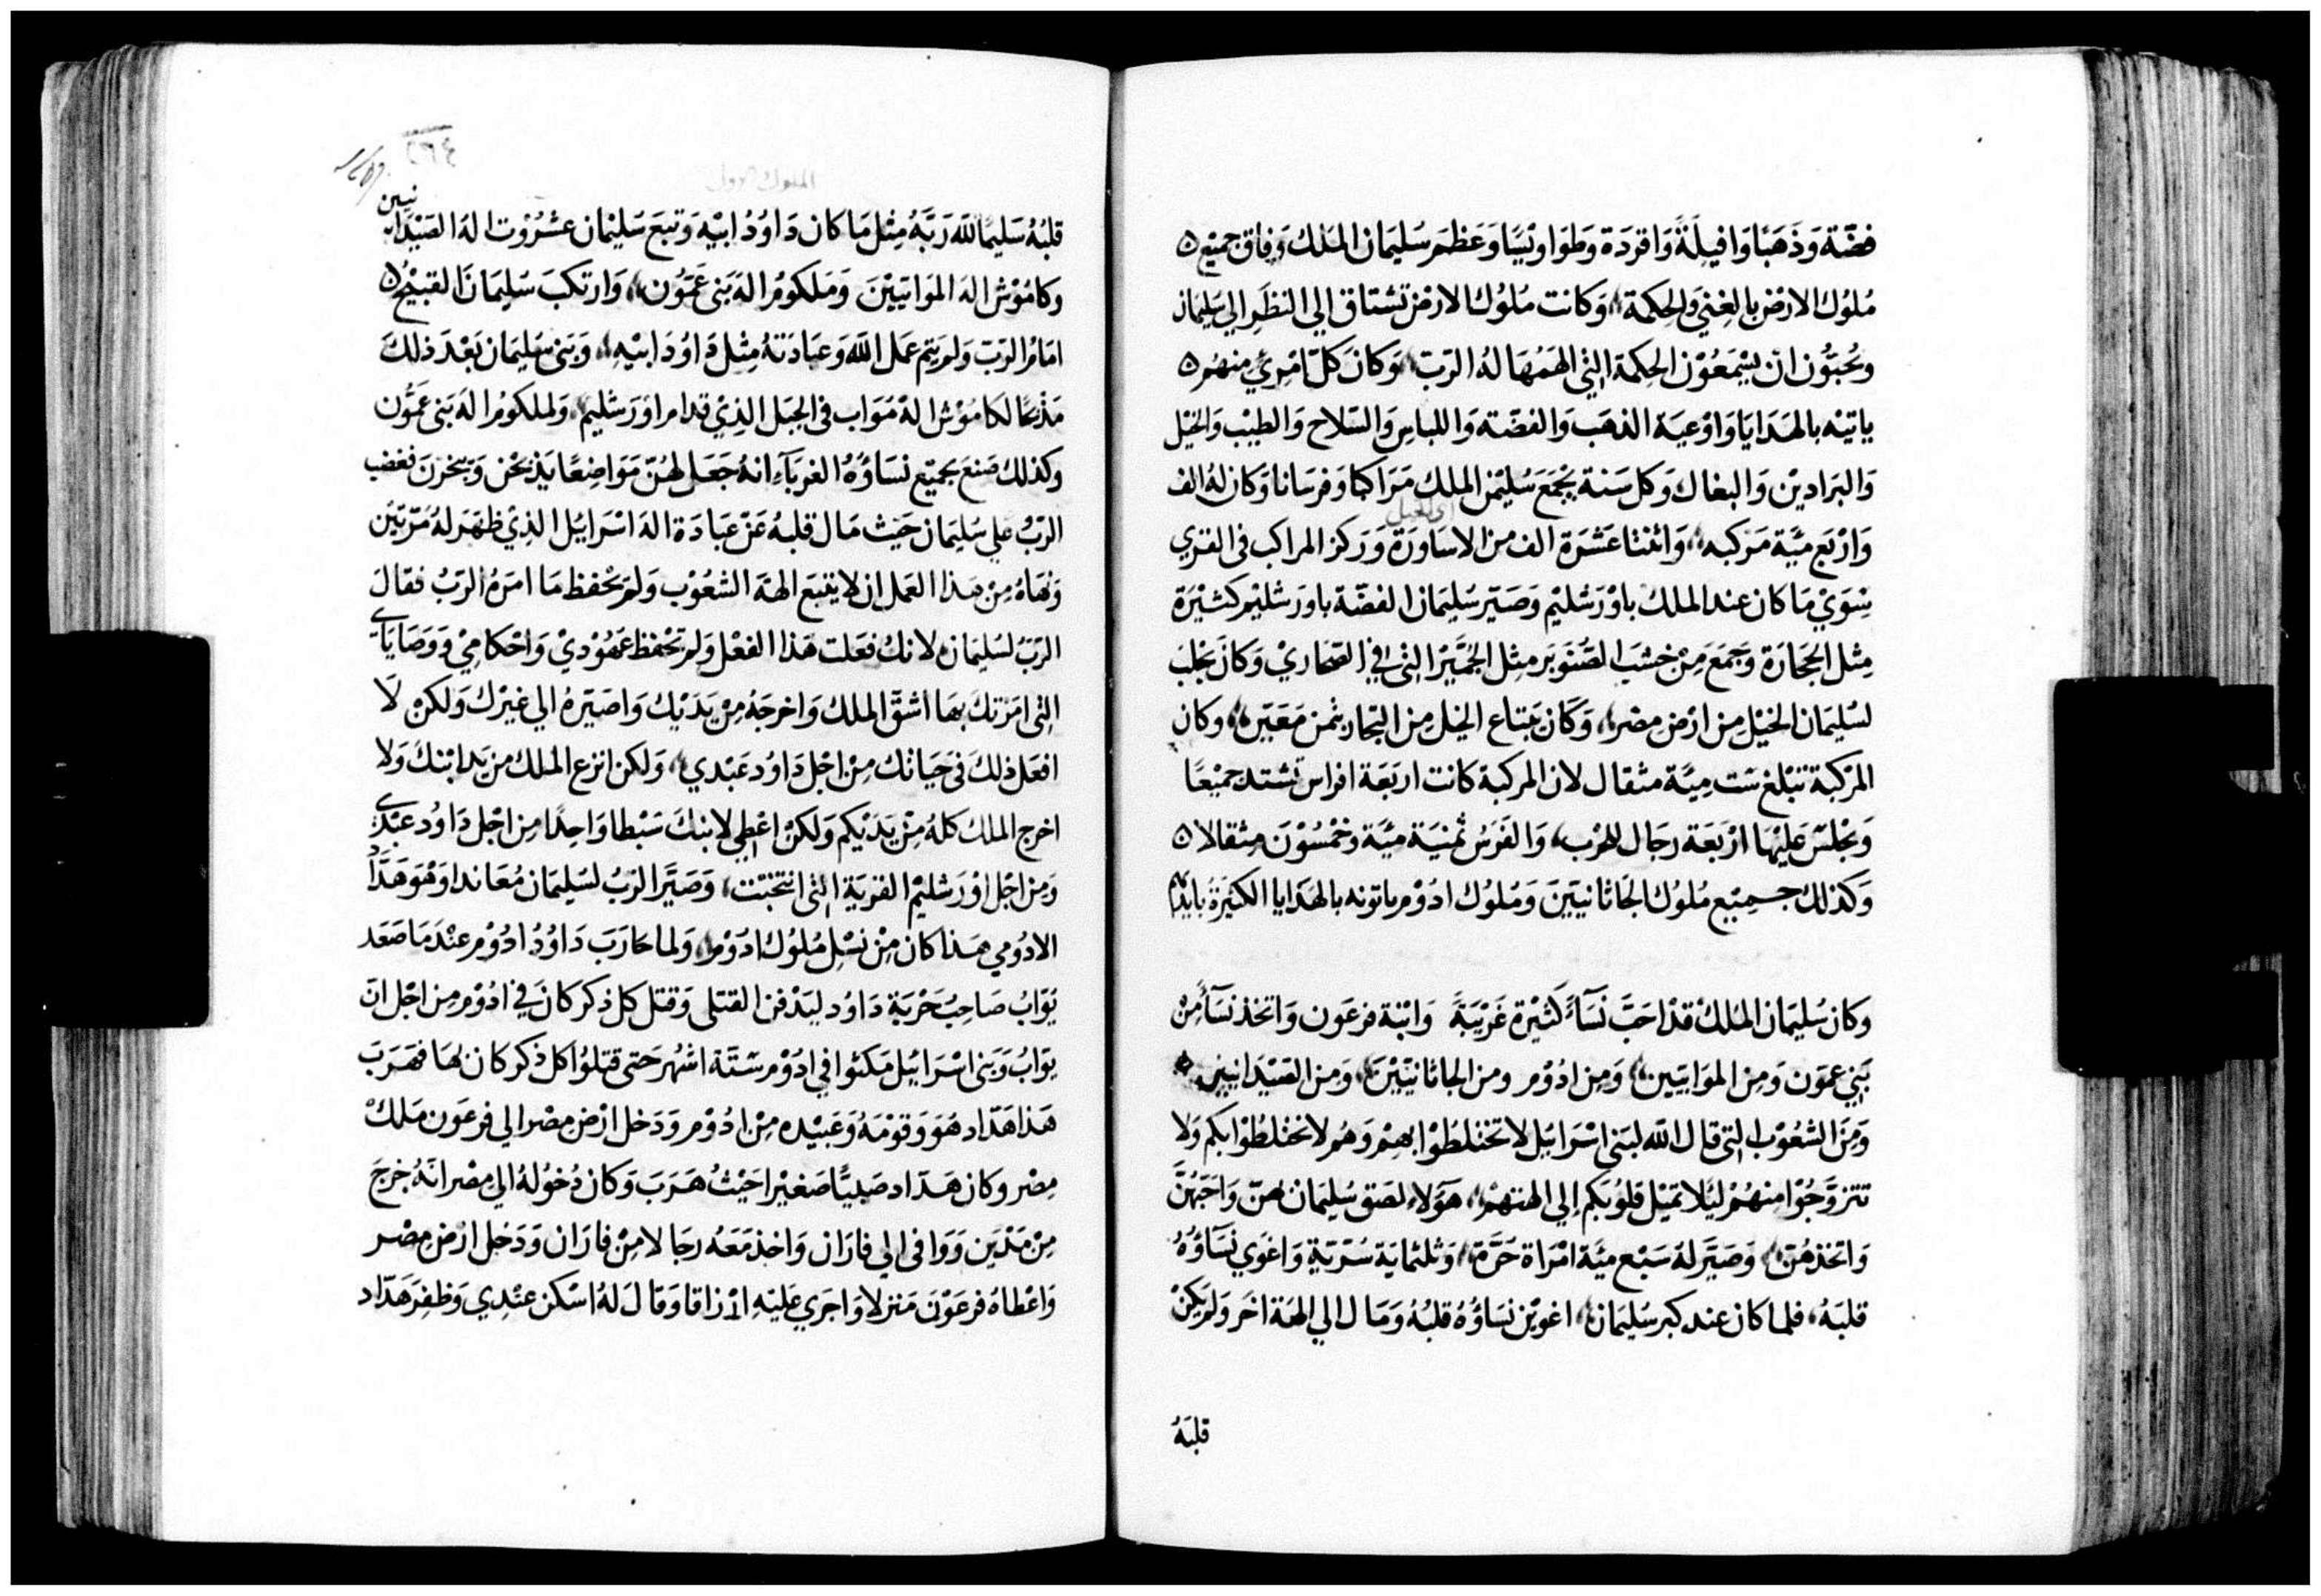 فضّة وَذَهَبًا وَافيلَةً وَاقردَة وَطوَاويْسًا وَعَظمَ سُليمَان المَلكُ وَفاق جميْع
مُلوُك الارْض بالغِني وَالحِكمَة، وَكانت مُلوُك الارضْ تشتاق الي النظَرِ الي سَليمَان
وتُحبّوُن انْ يسْمَعُوْن الحِكمَة التِي الهَمُهَا لهُ الرَب، وَكانَ كلّ امْرِيٍ منهُم
ياتيْه بالهَدَايَا وَاوْعيَة الذهَب وَالفضّة وَاللباسِ وَالسّلاح وَالطيْب وَالخيْل
وَالبرَاديْن وَالبغاك وَكل سَنة يجْمَع سُليْمن الملك مَرَاكبا وَفرسَانا وَكان لهُ الف
وَارْبَع ميَّة مَركبه، وَاثنتا عَشرَة الف من الاسَاورَة وَرَكز المراكب فى القري
سِوَيْ مَا كان عند الملك باوْرَشليْم وَصَيّر سُليمَان الفضّة باورَشليْم كثيْرَة
مِثل الحجَارَة وَجَمَعَ مِنْ خشَب الصَّنوبَر مثِل الجمَّيْز التِى في الصّحَاريْ وَكانَ يجْلبَ
لسُليمَان الخيْل مِن ارْضِ مصْر، وَكَان يَبتاع الخيْل مِن التجار بثمن مَعَيّن، وكان
المرْكبَة تبْلغ ست ميَّة مثقال لان المركبة كانت اربَعَة افراس تشتد جميْعًا
وَيجْلسْ عَليْهَا ارْبَعَة رجَال للحْرب، وَالفَرَسُ ثمنيَة ميَّة وخمْسُوْنَ مِثقالا
وَكذلك جميْع مُلوُك الجَاثانيّيَن وَمُلوُك ادُوْم ياتونه بالهَدَايا الكثيْرَةُ بايديْهم
وكان سُليمَان المَلكْ قدْ احَبَّ نسَآءً كثيْرة غَرْيَبةً وَابْنة فرعَون وَاتخذ نسَآءً مِنْ
بَنِي عمَون وَمِن الموَابيَين، وَمِن ادُوْم ومن الجاثانيّيْنَ، وَمِن الصّيْدَانيين
وَمِنَ الشعُوْب التِى قال الله لبَني اسْرَائيْل لا تختلطُوْا بهمْ وَهُم لا يختلطُوْا بكم وَلا
تتزوَّجُوْا منهُمْ ليَلا تميْل قلوُبكم إلي الهتهمْ، هَؤلآءِ لصَق سُليمَان بهنّ وَاحَبّهُنَّ
وَاتخذهُنّ، وَصَيَّر لهُ سَبْع ميَّة امْرَاة حَرَّة، وَثلثمايَة سُرّيّةٍ وَاغوَي نسَآؤهُ
قلبَهُ، فلما كان عند كبر سُليمَان، اغويْن نسَاؤهُ قلبُهُ وَمَال الي الهَة اخَر وَلم يكنْ
قلبَهُ
الملوك الاول
٢٣٤
قلبُهُ سَليمًا لله رَبَّهُ مِثل مَا كان دَاوُدُ ابيْه وَتبعَ سُليْمان عشْرُوْت الهَ الصَيْدَانيين
وكامُوْش الهَ الموَابيّيْنَ وَمَلكومُ الهَ بَنى عَمّوُن، وَارتكبَ سُليمَانَ القبيْحُ
امَامُ الرَبّ وَلم يَتم عمَل الله وَعبَادَتهُ مِثْل دَاوُدَ ابيْهِ، وَبنى سُليمَان بَعْدَ ذلكَ
مَذْبحًا لكامُوْش الهْ مُوَاب فى الجبَل الذِيْ قدام اوْرَشليم، وَلملكومُ الهَ بَنى عمَّون
وكذلك صَنعَ بجميْع نسَاؤهُ الغربَآءِ انهُ جَعَل لهُنّ مَوَاضِعًا يَذبحْن وَيبّخرْنَ فغضب
الربُّ علي سُليمَان حَيث مَال قلبهُ عَن عبَادَة الهَ اسْرَائيْل الذِيْ ظهَرَ لهُ مَرّتيْن
وَنهَاهُ مِنْ هَذا العَمل ان لا يتبَع الهَة الشعُوْب وَلم يحْفظ مَا امَرهُ الرَبُ فقالَ
الرَبّ لسُليمَان لانك فعَلت هَذا الفعْل وَلم تحْفظ عَهُوْديْ وَاحْكامِيْ وَوَصَايَاي
التِى امَرْتكَ بهَا اشقّ الملك وَاخرجَهُ مِنْ يَدَيْك وَاصَيّرَهُ الي غيرْك وَلكنْ لاَ
افعَل ذلكَ في حَيَاتك مِنْ اجْل دَاوُد عَبْدي، وَلكن انزع الملك مِن يَد ابْنكَ وَلا
اخرج الملك كلهُ مِنْ يَدَيْكم وَلكنْ اعْطِي لابنكَ سَبْطا وَاحِدًا مِن اجْل دَاوُد عَبْدي
وَمِن اجْل اوْرَشليْم القريَة التِى انتخبْتت، وَصَيَّر الرَبُ لسُليمَان مُعَاندا وَهْوَ هَدَّادُ
الادُومي هَذا كان مِنْ نسْل مُلوُك ادَوْم، وَلما حَارَبَ دَاوُدُ ادُوْم عنْدَ مَا صَعَد
يُوَابُ صَاحِبُ حَرْبَةِ دَاوُد ليَدْفن القتلى وَقتل كل ذكر كانَ في ادُوْم مِن اجْل انّ
يوَابُ وَبَنى اسْرَائيْل مَكثوا في ادَوْم ستّة اشهُر حَتى قتلوُا كل ذكر كان بهَا فهَرَبَ
هَذا هَدّاد هُوَ وَقوْمَهُ وَعبيْده مِنْ ادُوْم وَدَخل ارْض مِصْر الي فرعَون مَلكْ
مِصْر وكان هَدّاد صَبيًّا صَغيْرا حَيْثُ هَرَبَ وَكان دُخوُلهُ الي مِصْر انّهُ خرجَ
مِنْ مَدْيَن وَوَافى الي فارَان وَاخذ مَعَهُ رجَالا مِنْ فارَان وَدَخل ارْض مِصْر
وَاعْطاهُ فرعَوْنَ مَنزلا وَاجرَي عَليْهِ ارْزاقا وَقالَ لهُ اسْكن عنْدِي وَظفِرَ هَدّاد